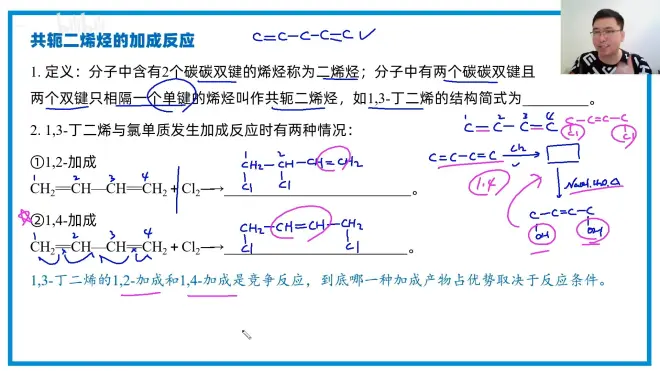 共轭二烯烃的加成反应
C=C-C-C=C ✓
1. 定义：分子中含有2个碳碳双键的烯烃称为二烯烃；分子中有两个碳碳双键且
两个双键只相隔一个单键的烯烃叫作共轭二烯烃，如1,3-丁二烯的结构简式为________。
1 2 3 4
C=C-C=C
C-C=C-C
Cl Cl
2. 1,3-丁二烯与氯单质发生加成反应时有两种情况：
①1,2-加成
1 2 3 4
CH₂=CH—CH=CH₂+Cl₂→________。
1 2
CH₂-CH-CH=CH₂
Cl Cl
C=C-C=C
1.4
C-C=C-C
OH OH
②1,4-加成
1 2 3 4
CH₂=CH—CH=CH₂+Cl₂→________。
CH₂-CH=CH-CH₂
Cl Cl
1,3-丁二烯的1,2-加成和1,4-加成是竞争反应，到底哪一种加成产物占优势取决于反应条件。